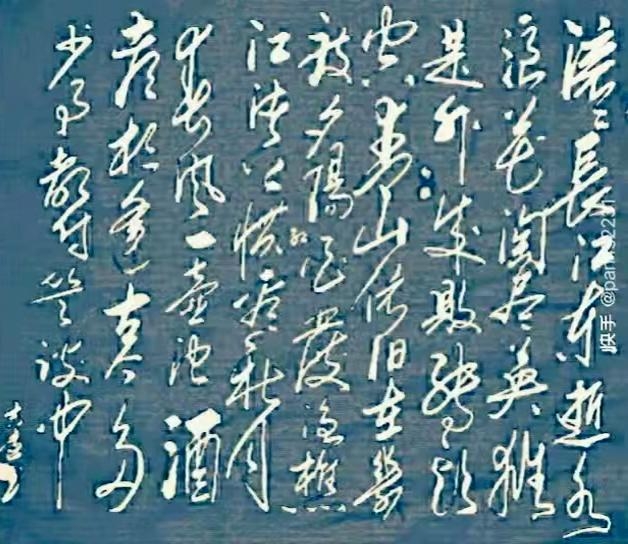 滚〻長江东逝水
浪花淘尽英雄
是非成败转头
空青山依旧在幾
度夕陽红白发渔樵
江渚上惯看秋月
春风一壶浊酒
喜相逢古今多
少事都付笑谈中
快手